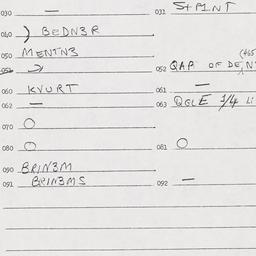 030 — 031 St PINT
040 ) BEDN3R
050 MENTN3
051 052 QAP OF DE,N
060 KVURT 061 —
062 — 063 QGLE 3/4 Li
070 O
080 O 081 O
090 BRIN3M
091 BRIN3MS 092 —